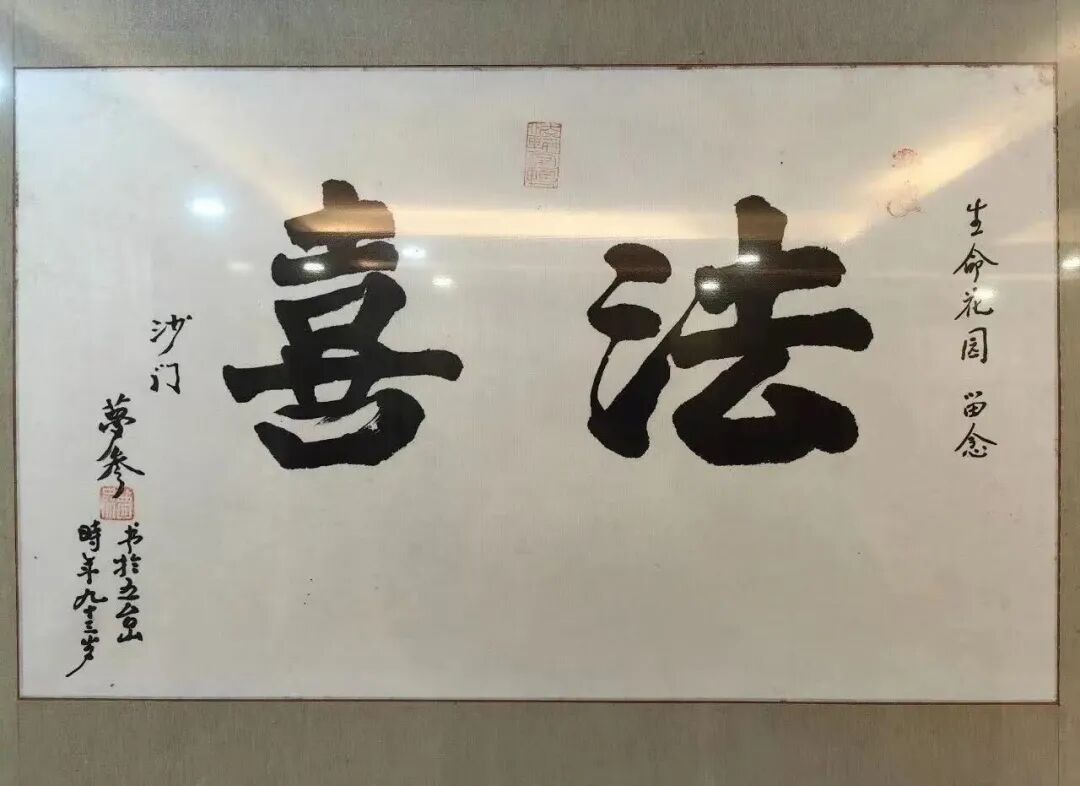 生命花园 留念
法喜
沙门
夢参
书於五台山
時年九十三岁